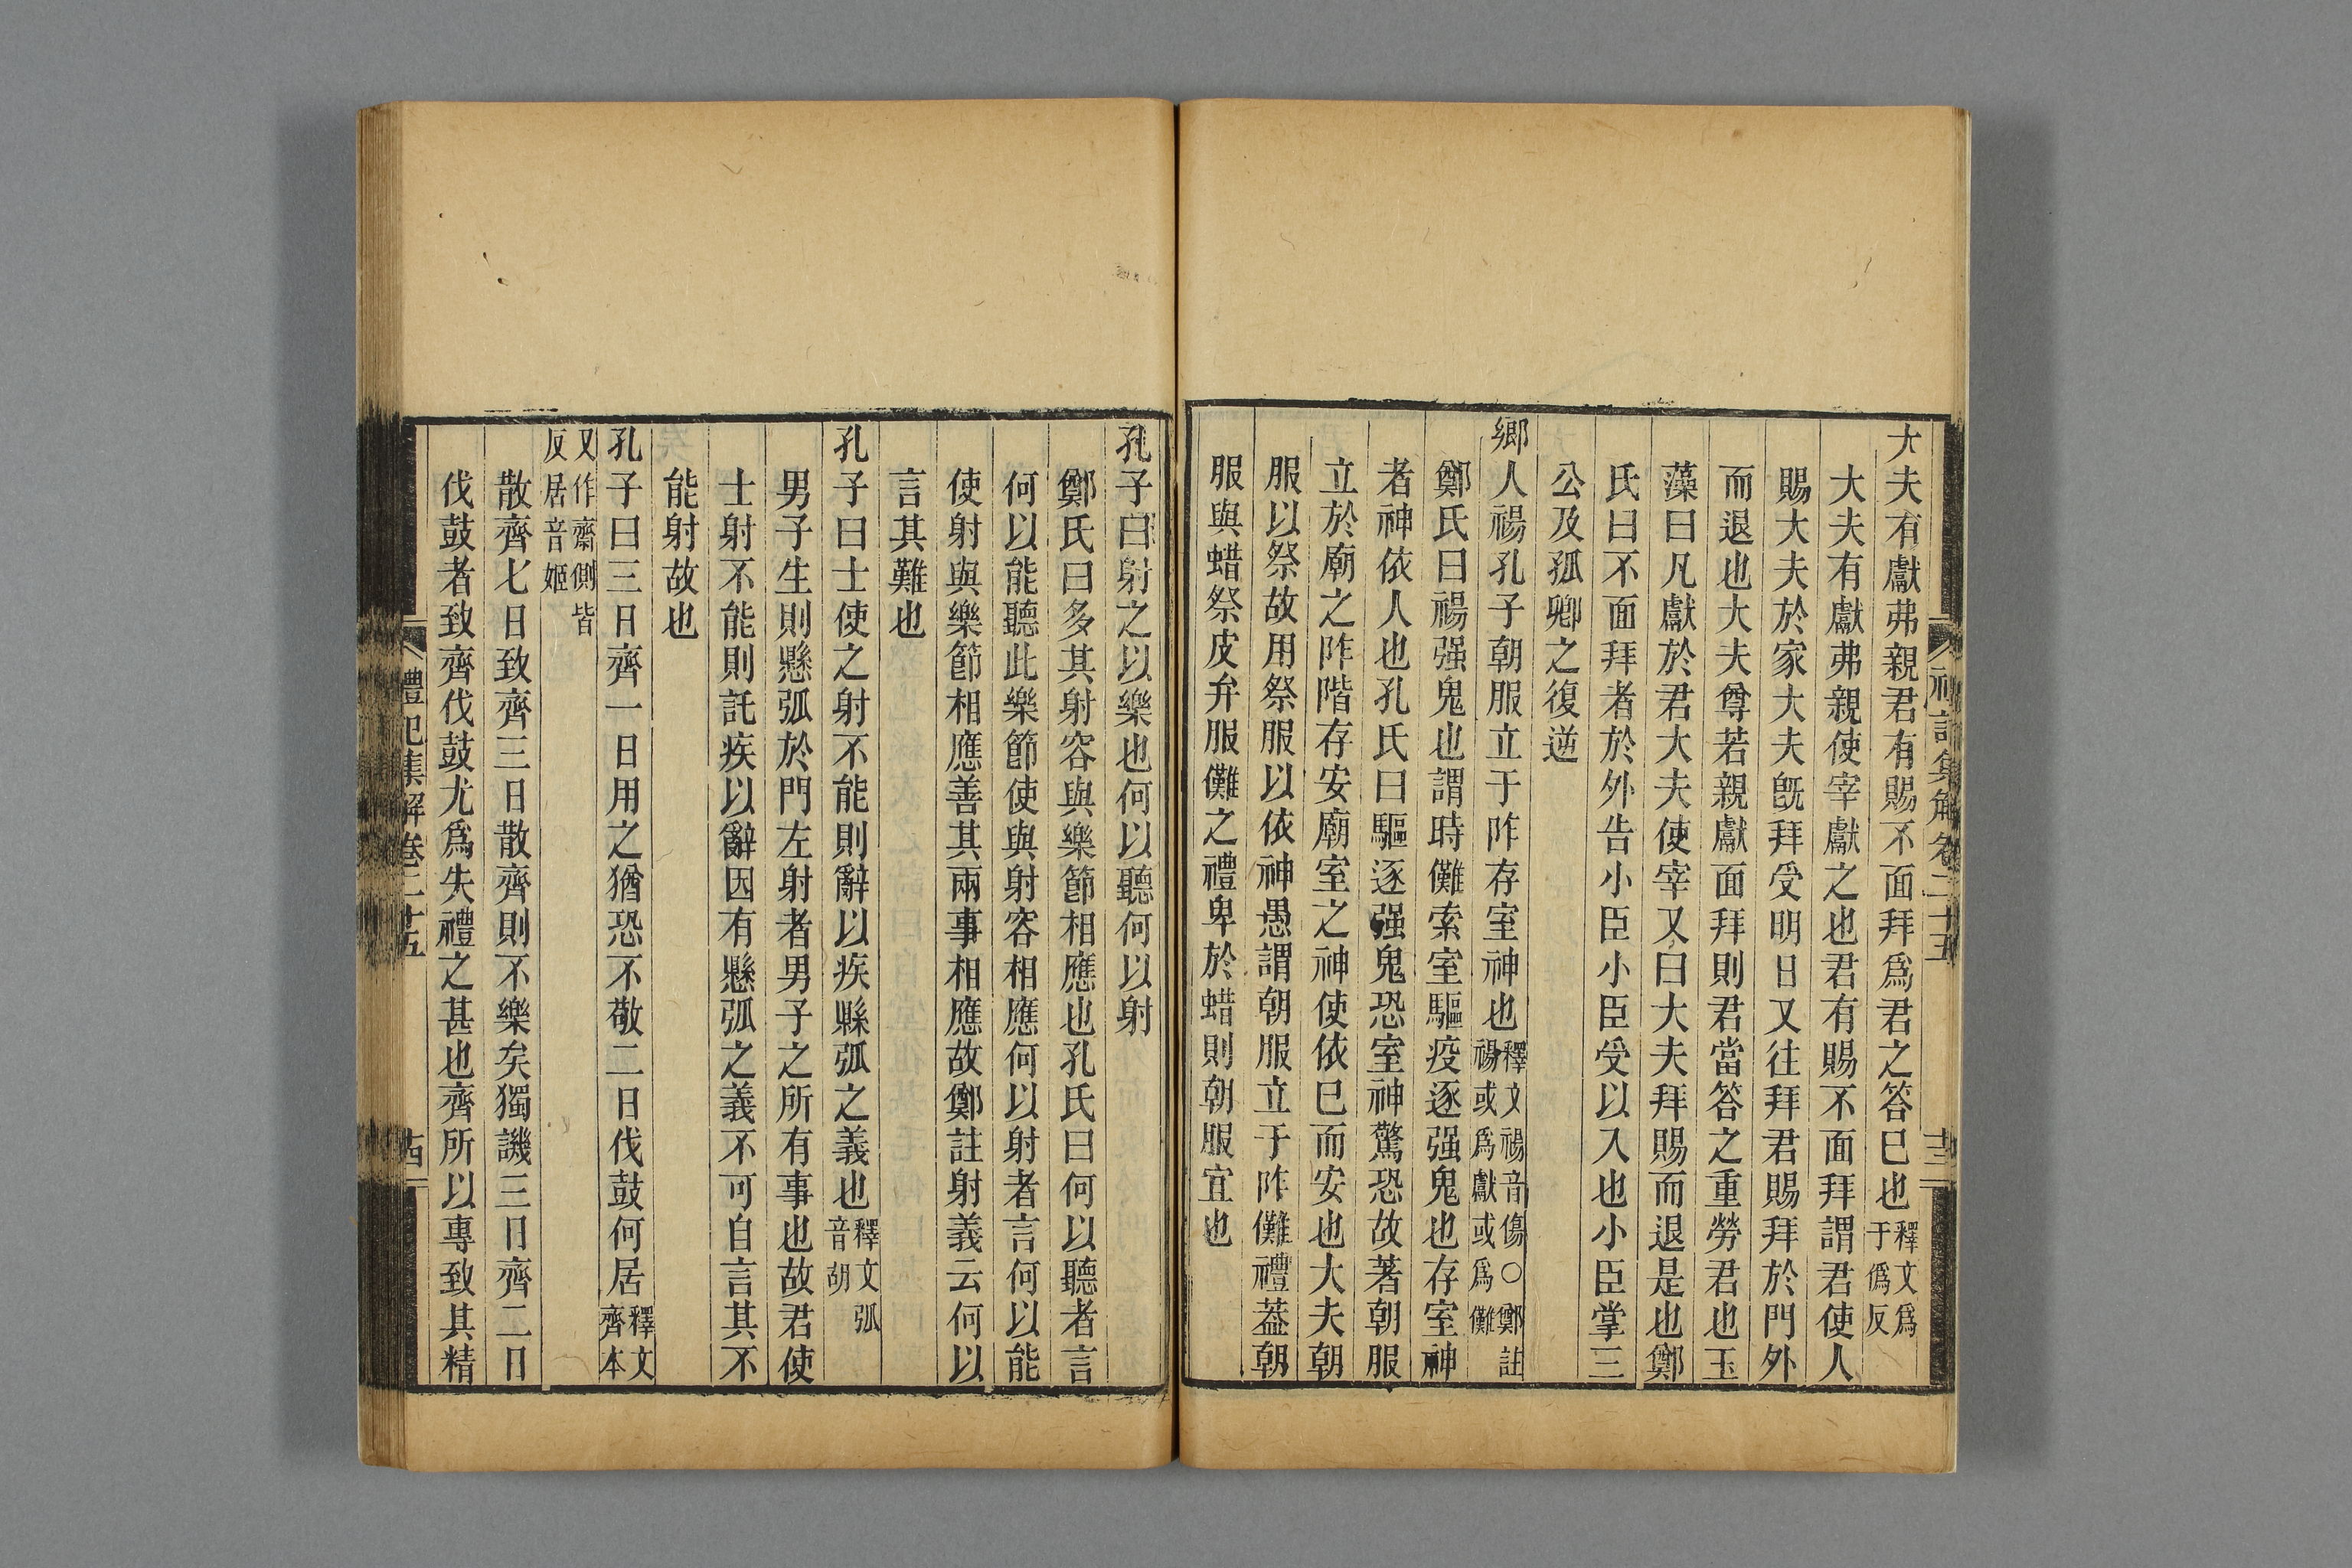 大夫有獻弗親君有賜不面拜爲君之答巳也釋文爲于僞反
大夫有獻弗親使宰獻之也君有賜不面拜謂君使人
賜大夫於家大夫旣拜受明日又往拜君賜拜於門外
而退也大夫尊若親獻面拜則君當答之重勞君也玉
藻曰凡獻於君大夫使宰又曰大夫拜賜而退是也鄭
氏曰不面拜者於外告小臣小臣受以入也小臣掌三
公及孤卿之復逆
鄉人禓孔子朝服立于阼存室神也釋文禓音傷○鄭註禓或爲獻或爲儺
鄭氏曰禓强鬼也謂時儺索室驅疫逐强鬼也存室神
者神依人也孔氏曰驅逐强鬼恐室神驚恐故著朝服
立於廟之阼階存安廟室之神使依巳而安也大夫朝
服以祭故用祭服以依神愚謂朝服立于阼儺禮葢朝
服與蜡祭皮弁服儺之禮卑於蜡則朝服宜也
禮記集解卷二十五
十三
孔子曰射之以樂也何以聽何以射
鄭氏曰多其射容與樂節相應也孔氏曰何以聽者言
何以能聽此樂節使與射容相應何以射者言何以能
使射與樂節相應善其兩事相應故鄭註射義云何以
言其難也
孔子曰士使之射不能則辭以疾縣弧之義也釋文弧音胡
男子生則懸弧於門左射者男子之所有事也故君使
士射不能則託疾以辭因有懸弧之義不可自言其不
能射故也
孔子曰三日齊一日用之猶恐不敬二日伐鼓何居釋文齊本
又作齋側皆反居音姬
散齊七日致齊三日散齊則不樂矣獨譏三日齊二日
伐鼓者致齊伐鼓尤爲失禮之甚也齊所以專致其精
禮記集解卷二十五
十四